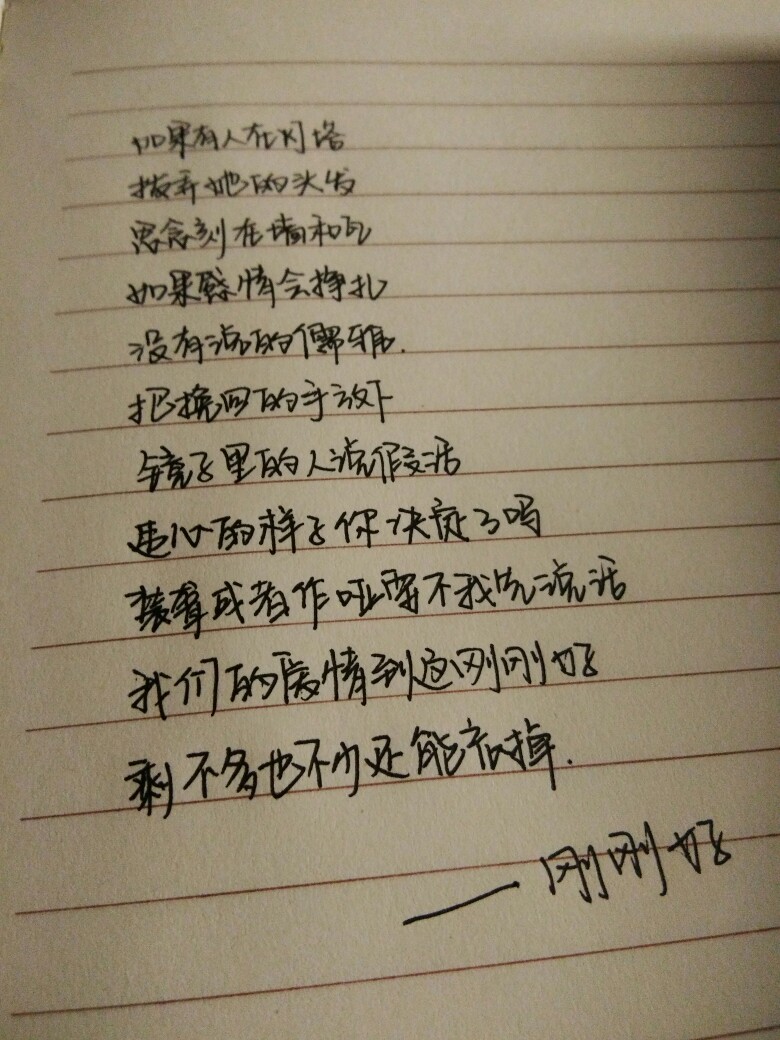 如果有人在灯塔
拨弄她的头发
思念刻在墙和瓦
如果感情会挣扎
没有说的儒雅.
把挽回的手放下
镜子里的人说假话
违心的样子你决定了吗
装聋或者作哑要不我先说话
我们的爱情到这刚刚好
剩不多也不少还能忘掉.
——刚刚好